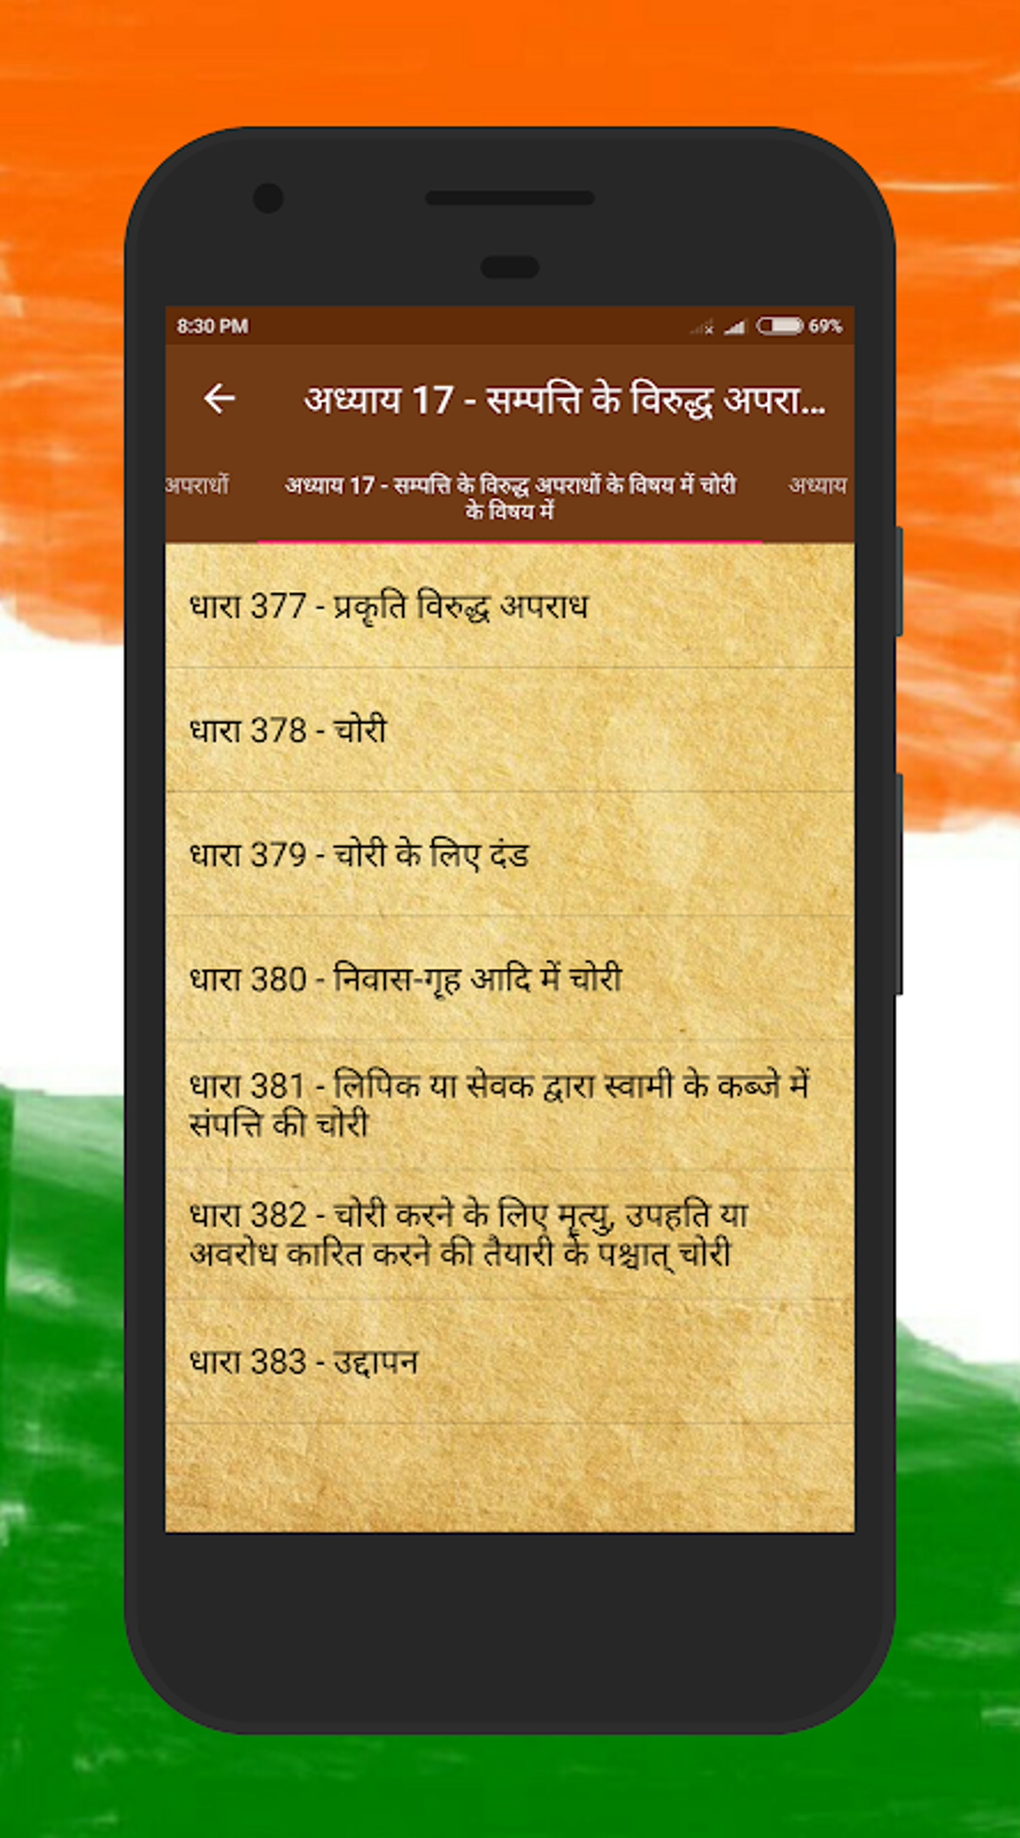 8:30 PM 69%
अध्याय 17 - सम्पत्ति के विरुद्ध अपरा...
अपराधों
अध्याय 17 - सम्पत्ति के विरुद्ध अपराधों के विषय में चोरी
के विषय में
अध्याय
धारा 377 - प्रकृति विरुद्ध अपराध
धारा 378 - चोरी
धारा 379 - चोरी के लिए दंड
धारा 380 - निवास-गृह आदि में चोरी
धारा 381 - लिपिक या सेवक द्वारा स्वामी के कब्जे में
संपत्ति की चोरी
धारा 382 - चोरी करने के लिए मृत्यु, उपहति या
अवरोध कारित करने की तैयारी के पश्चात् चोरी
धारा 383 - उद्दापन